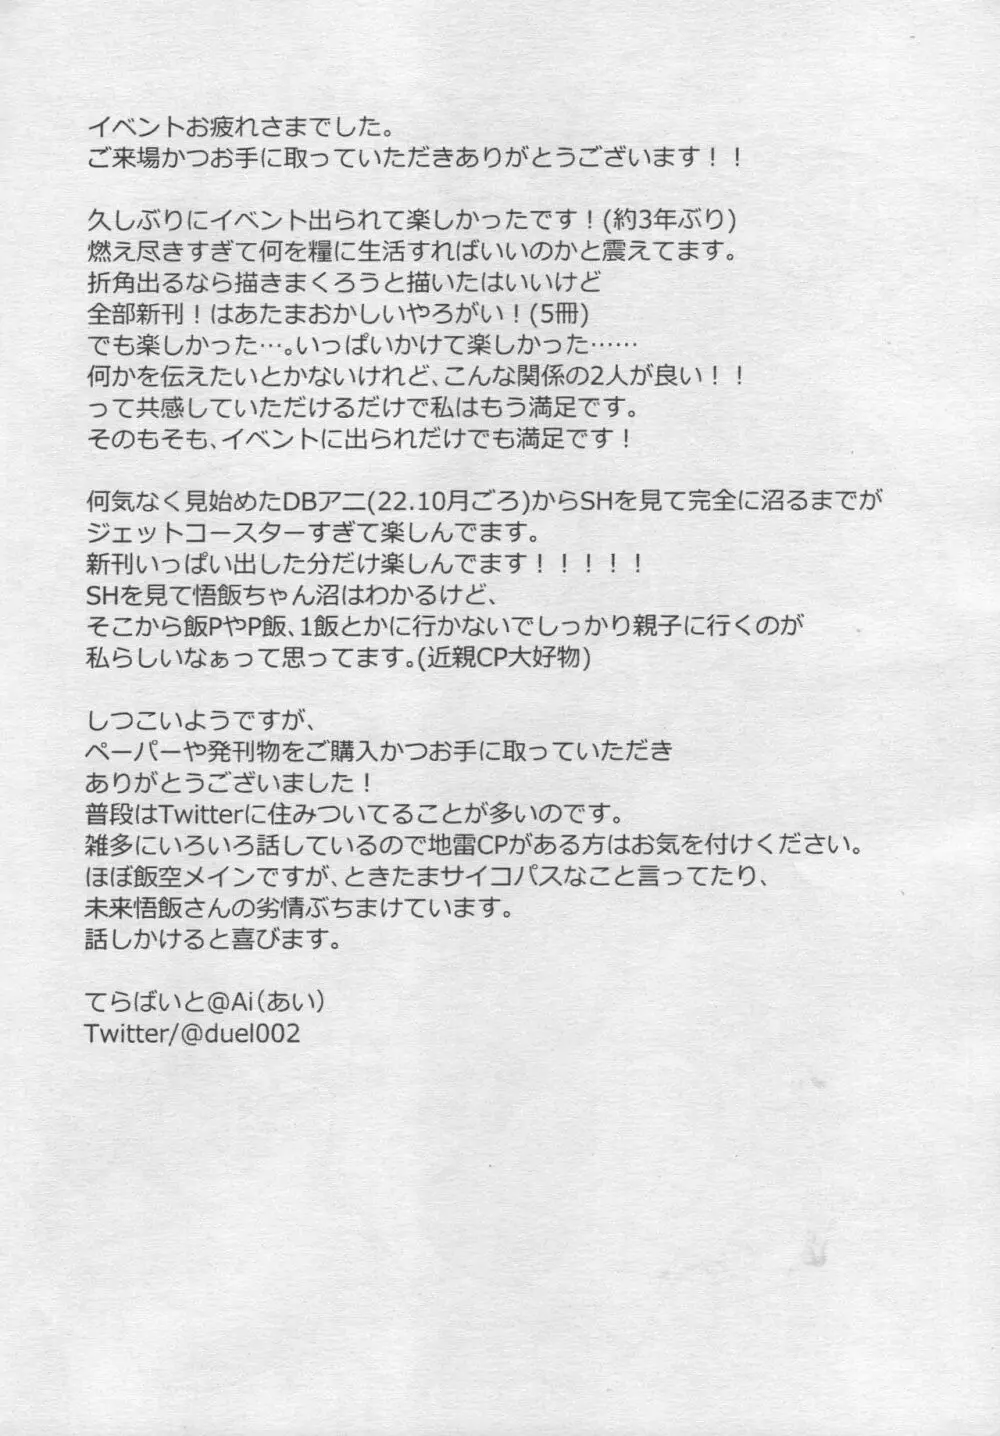 イベントお疲れさまでした。
ご来場かつお手に取っていただきありがとうございます！！
久しぶりにイベント出られて楽しかったです！(約3年ぶり)
燃え尽きすぎて何を糧に生活すればいいのかと震えてます。
折角出るなら描きまくろうと描いたはいいけど
全部新刊！はあたまおかしいやろがい！(5冊)
でも楽しかった…。いっぱいかけて楽しかった……
何かを伝えたいとかないけれど、こんな関係の2人が良い！！
って共感していただけるだけで私はもう満足です。
そのもそも、イベントに出られだけでも満足です！
何気なく見始めたDBアニ(22.10月ごろ)からSHを見て完全に沼るまでが
ジェットコースターすぎて楽しんでます。
新刊いっぱい出した分だけ楽しんでます！！！！！
SHを見て悟飯ちゃん沼はわかるけど、
そこから飯PやP飯、1飯とかに行かないでしっかり親子に行くのが
私らしいなぁって思ってます。(近親CP大好物)
しつこいようですが、
ペーパーや発刊物をご購入かつお手に取っていただき
ありがとうございました！
普段はTwitterに住みついてることが多いのです。
雑多にいろいろ話しているので地雷CPがある方はお気を付けください。
ほぼ飯空メインですが、ときたまサイコパスなこと言ってたり、
未来悟飯さんの劣情ぶちまけています。
話しかけると喜びます。
てらばいと@Ai（あい）
Twitter/@duel002